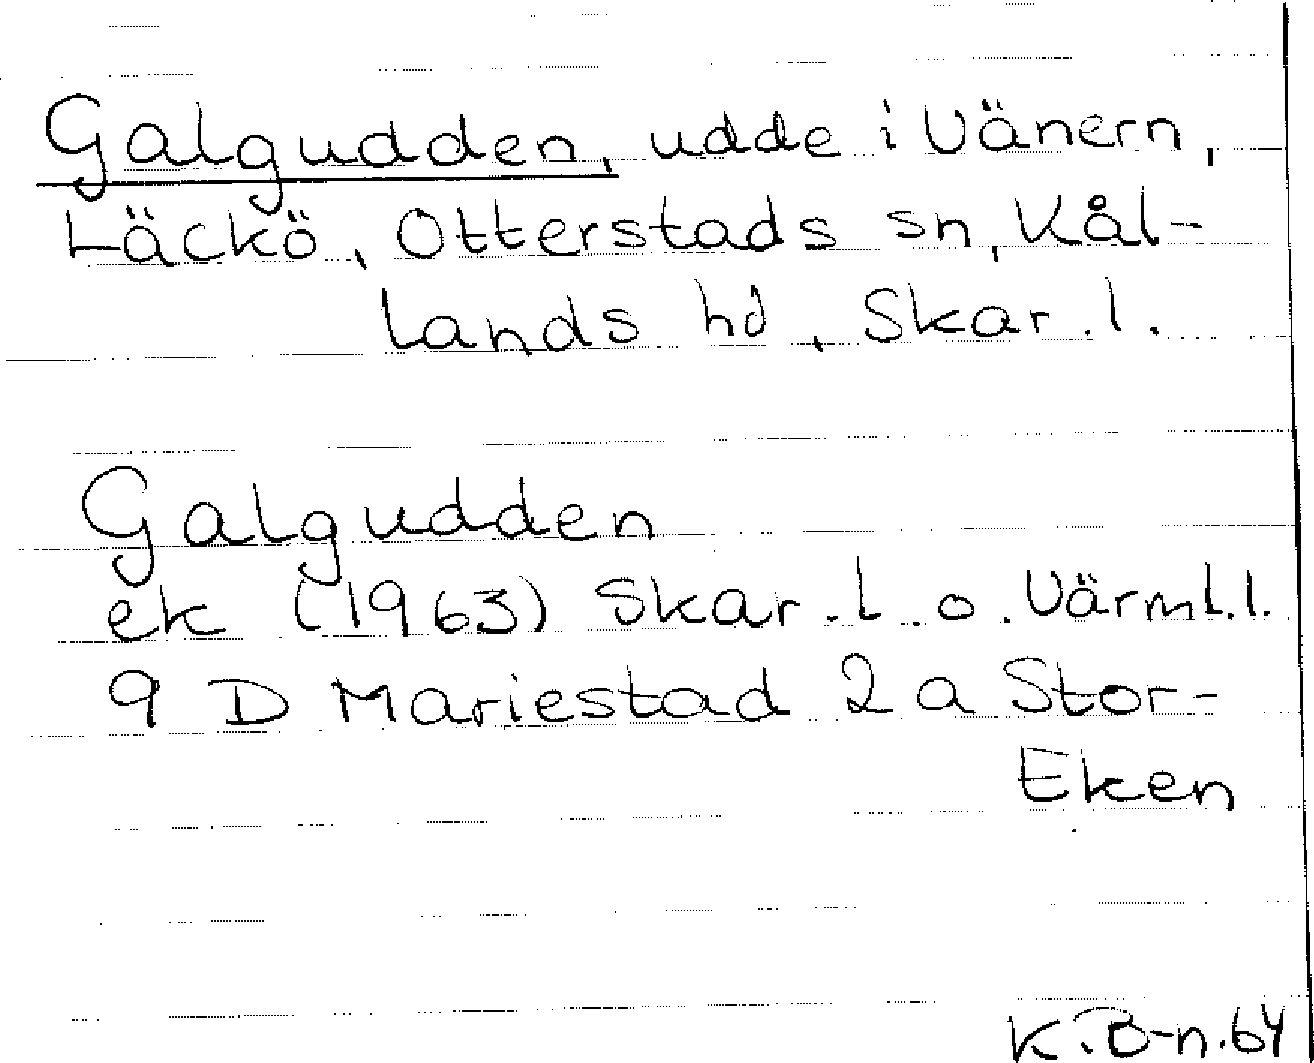 Galgudden, udde i Vänern,
Läckö, Otterstads sn, Kål-
lands hd, Skar. l.
Galgudden
ek (1963) Skar. l. o. Värml. l.
9 D Mariestad 2 a Stor-
Eken
K. B-n. 64